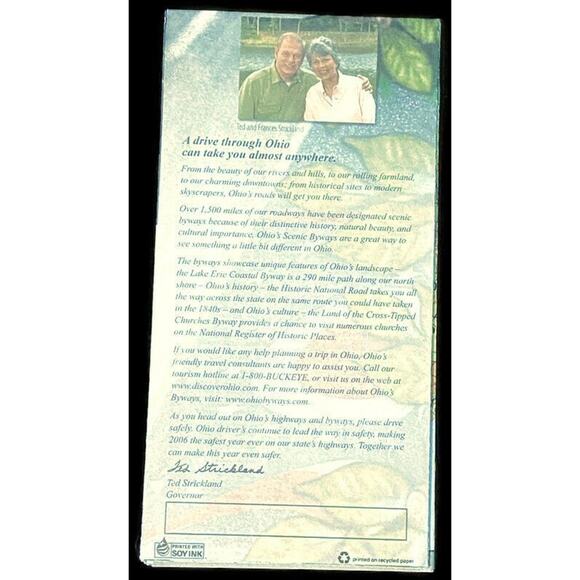 Ted and Frances Strickland
A drive through Ohio
can take you almost anywhere.
From the beauty of our rivers and hills, to our rolling farmland,
to our charming downtowns; from historical sites to modern
skyscrapers, Ohio's roads will get you there.
Over 1,500 miles of our roadways have been designated scenic
byways because of their distinctive history, natural beauty, and
cultural importance, Ohio's Scenic Byways are a great way to
see something a little bit different in Ohio.
The byways showcase unique features of Ohio's landscape –
the Lake Erie Coastal Byway is a 290 mile path along our north
shore – Ohio's history – the Historic National Road takes you all
the way across the state on the same route you could have taken
in the 1840s – and Ohio's culture – the Land of the Cross-Tipped
Churches Byway provides a chance to visit numerous churches
on the National Register of Historic Places.
If you would like any help planning a trip in Ohio, Ohio's
friendly travel consultants are happy to assist you. Call our
tourism hotline at 1-800-BUCKEYE, or visit us on the web at
www.discoverohio.com. For more information about Ohio's
Byways, visit: www.ohiobyways.com.
As you head out on Ohio's highways and byways, please drive
safely. Ohio driver's continue to lead the way in safety, making
2006 the safest year ever on our state's highways. Together we
can make this year even safer.
Ted Strickland
Ted Strickland
Governor
PRINTED WITH
SOY INK
printed on recycled paper